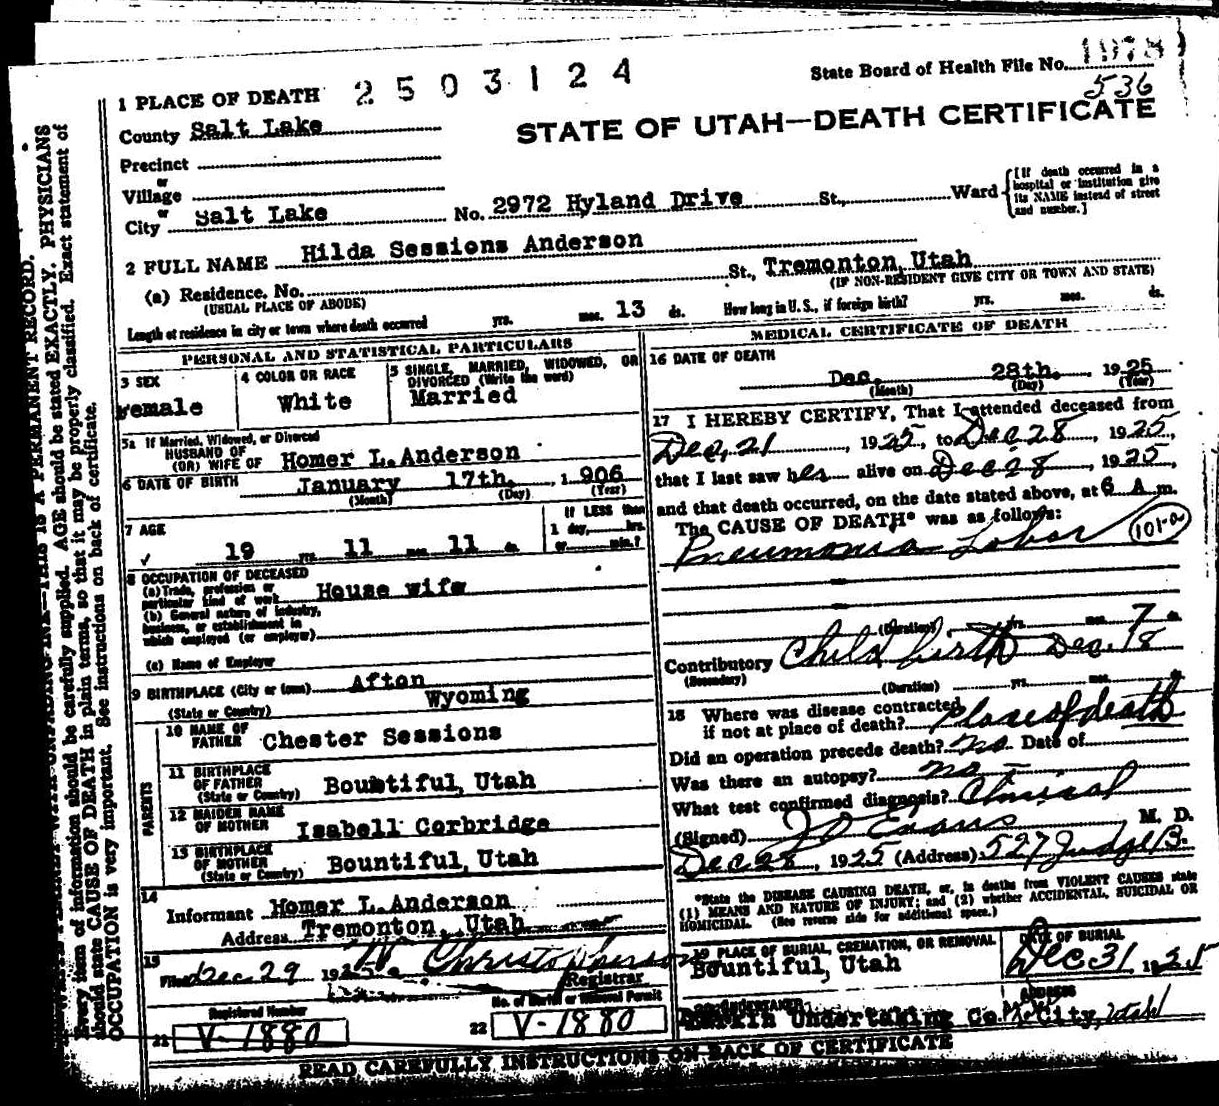 2503124
State Board of Health File No. 1978
536
STATE OF UTAH—DEATH CERTIFICATE
1 PLACE OF DEATH
County Salt Lake
Precinct
or
Village
or
City Salt Lake No. 2972 Hyland Drive St., Ward
[If death occurred in a hospital or institution give its NAME instead of street and number.]
2 FULL NAME Hilda Sessions Anderson
(a) Residence. No. St., Tremonton, Utah
(USUAL PLACE OF ABODE) (IF NON-RESIDENT GIVE CITY OR TOWN AND STATE)
Length of residence in city or town where death occurred yrs. mos. 13 ds. How long in U. S., if foreign birth? yrs. mos. ds.
PERSONAL AND STATISTICAL PARTICULARS
3 SEX
Female
4 COLOR OR RACE
White
5 SINGLE, MARRIED, WIDOWED, OR
DIVORCED (Write the word)
Married
5a If Married, Widowed, or Divorced
HUSBAND OF
(OR) WIFE OF Homer L. Anderson
6 DATE OF BIRTH January 17th. 1906
(Month) (Day) (Year)
7 AGE
19 yrs 11 mos 11 ds
If LESS than
1 day, hrs.
or min.?
8 OCCUPATION OF DECEASED
(a) Trade, profession or
particular kind of work House wife
(b) General nature of industry,
business, or establishment in
which employed (or employer)
(c) Name of Employer
9 BIRTHPLACE (City or town) Afton
(State or Country) Wyoming
PARENTS
10 NAME OF
FATHER Chester Sessions
11 BIRTHPLACE
OF FATHER
(State or Country) Bountiful, Utah
12 MAIDEN NAME
OF MOTHER Isabell Corbridge
13 BIRTHPLACE
OF MOTHER
(State or Country) Bountiful, Utah
14
Informant Homer L. Anderson
Address Tremonton, Utah
15
Filed Dec. 29 1925 Christophersons
Registrar
Registered Number
21 V-1880
No. of Burial or Removal Permit
22 V-1880
MEDICAL CERTIFICATE OF DEATH
16 DATE OF DEATH
Dec. 28th. 1925
(Month) (Day) (Year)
17 I HEREBY CERTIFY, That I attended deceased from
Dec. 21, 1925, to Dec. 28, 1925,
that I last saw her alive on Dec 28, 1925
and that death occurred, on the date stated above, at 6 A m.
The CAUSE OF DEATH* was as follows:
Pneumonia Lobar 101-a
(Duration) yrs. mos. 7 ds.
Contributory Child birth Dec. 18
(Secondary)
(Duration) yrs. mos.
18 Where was disease contracted
if not at place of death? Place of death
Did an operation precede death? no Date of
Was there an autopsy? no
What test confirmed diagnosis? Clinical
(Signed) J O Evans M. D.
Dec 28, 1925 (Address) 527 Judge B.
*State the DISEASE CAUSING DEATH, or, in deaths from VIOLENT CAUSES state
(1) MEANS AND NATURE OF INJURY; and (2) whether ACCIDENTAL, SUICIDAL OR
HOMICIDAL. (See reverse side for additional space.)
19 PLACE OF BURIAL, CREMATION, OR REMOVAL
Bountiful, Utah
DATE OF BURIAL
Dec 31 1925
20 UNDERTAKER
Larkin Undertaking Co.
ADDRESS
City, Utah
READ CAREFULLY INSTRUCTIONS ON BACK OF CERTIFICATE
Every item of information should be carefully supplied. AGE should be stated EXACTLY. PHYSICIANS
should state CAUSE OF DEATH in plain terms, so that it may be properly classified. Exact statement of
OCCUPATION is very important. See instructions on back of certificate.
THIS IS A PERMANENT RECORD.